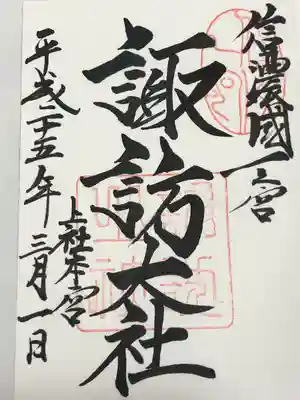 信濃國一宮
諏訪大社
上社本宮
平成二十五年三月一日